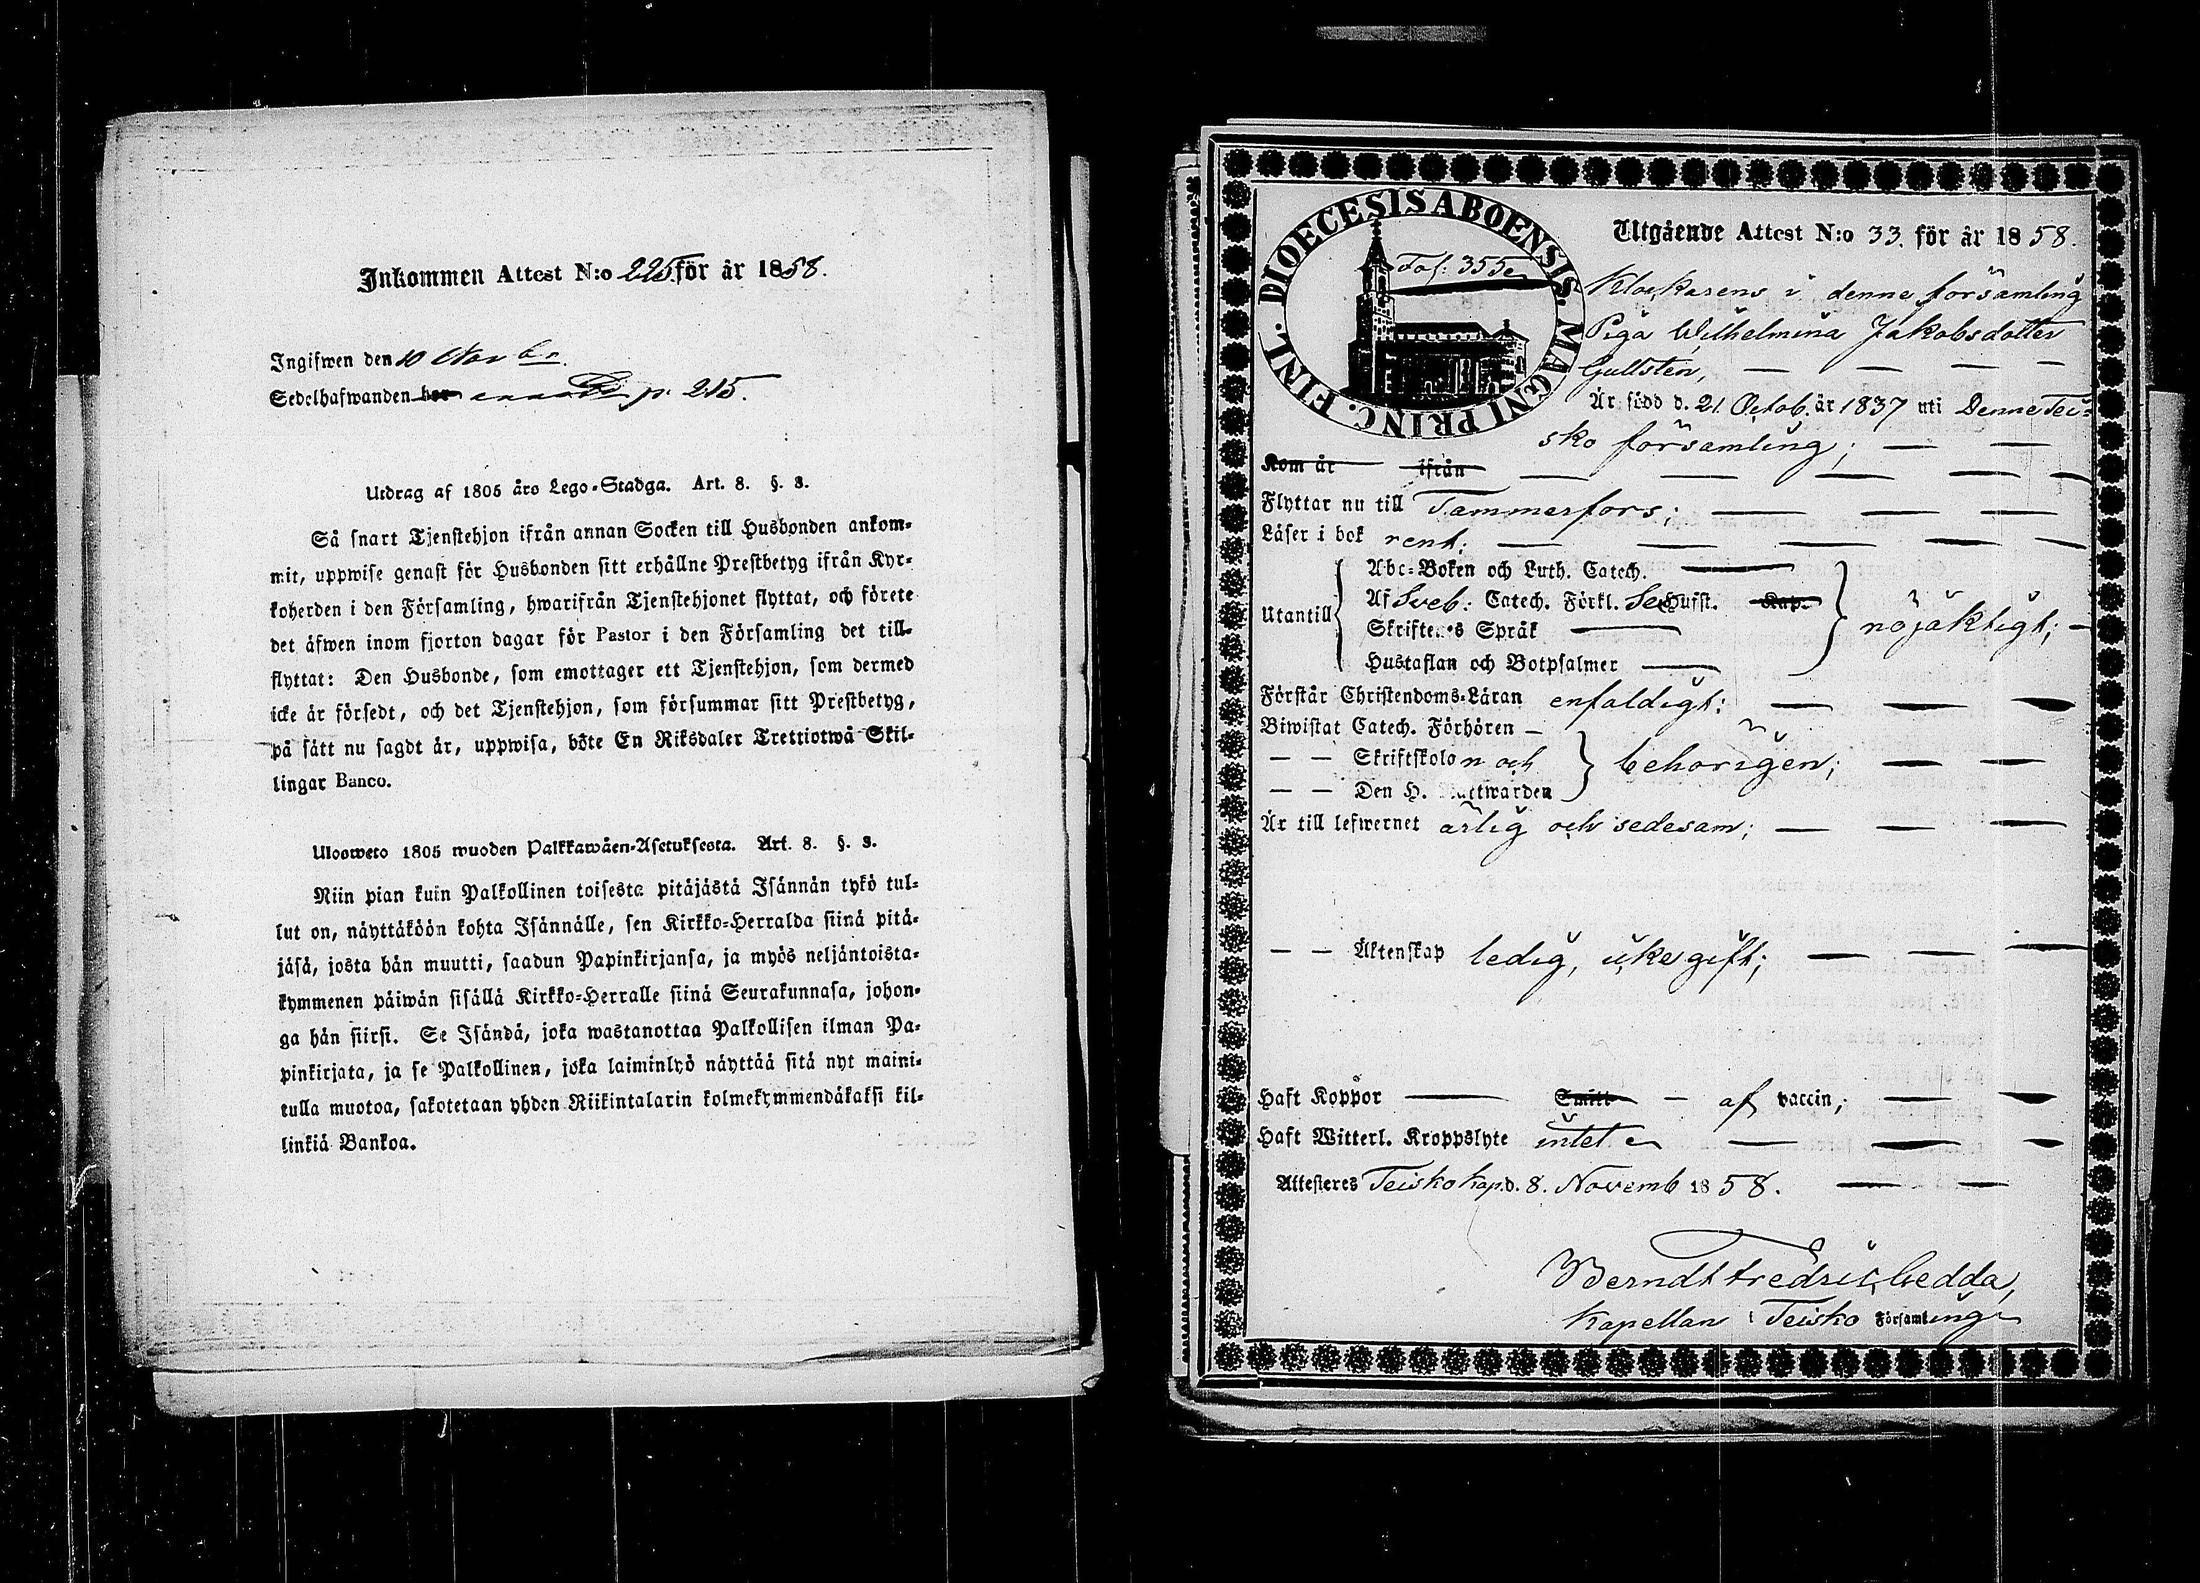 Inkommen Attest N:o 225 för år 1858.
Ingifwen den 10 Novbr.
Sedelhafwanden har p. 215.
Utdrag af 1805 års Lego-Stadga. Art. 8. §. 3.
Så snart Tjenstehjon ifrån annan Socken till Husbonden ankom-
mit, uppwise genast för Husbonden sitt erhållne Prestbetyg ifrån Kyr-
koherden i den Församling, hwarifrån Tjenstehjonet flyttat, och förete
det äfwen inom fjorton dagar för Pastor i den Församling det till-
flyttat: Den Husbonde, som emottager ett Tjenstehjon, som dermed
icke är försedt, och det Tjenstehjon, som försummar sitt Prestbetyg,
på sätt nu sagdt är, uppwisa, böte En Riksdaler Trettiotwå Skil-
lingar Banco.
Ulosweto 1805 wuoden Palkkawäen-Asetuksesta. Art. 8. §. 3.
Niin pian kuin Palkollinen toisesta pitäjästä Isännän tykö tul-
lut on, näyttäköön kohta Isännälle, sen Kirkko-Herralda siinä pitä-
jäsä, josta hän muutti, saadun Papinkirjansa, ja myös neljäntoista-
kymmenen päiwän sisällä Kirkko-Herralle siinä Seurakunnasa, johon-
ga hän siirsi. Se Isändä, joka wastanottaa Palkollisen ilman Pa-
pinkirjata, ja se Palkollinen, joka laiminlyö näyttää sitä nyt maini-
tulla muotoa, sakotetaan yhden Riikintalarin kolmekymmendäkaksi kil-
linkiä Bankoa.
DIOECESIS ABOENSIS. MAGNI PRINC. FINL.
Fol: 355
Utgående Attest N:o 33. för år 1858.
Klockarens i denne församling
Piga Wilhelmina Jakobsdotter
Gullsten,
Är född d. 21. Octob. år 1837 uti Denne Tei-
sko församling;
Kom år ifrån
Flyttar nu till Tammerfors;
Läser i bok rent;
Utantill
Abc-Boken och Luth. Catech.
Af Sveb: Catech. Förkl. Hufst. Kap.
Skriftenes Språk
Hustaflan och Botpsalmer
nöjaktigt;
Förstår Christendoms-Läran enfaldigt:
Biwistat Catech. Förhören
— — Skriftskolon och
— — Den H. Nattwarden
behörigen;
Är till lefwernet ärlig och sedesam;
— — Äktenskap ledig, icke gift;
Haft Koppor Smitt — af vaccin;
Haft Witterl. Kroppslyte intet
Attesteres Teisko kap. d. 8. Novemb 1858.
Berndt Fredric Gedda,
Kapellan i Teisko Församling